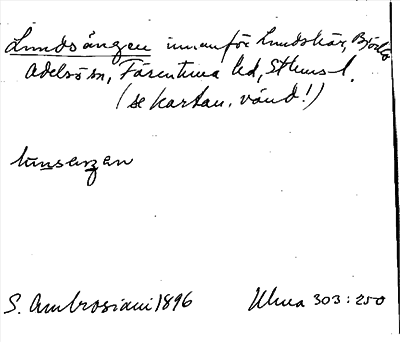 Lundsängen innanför Lundskär, Björkö
Adelsö sn, Färentuna hd, Sthms l.
(se kartan, vänd!)
lunseŋen
S. Ambrosiani 1896 Ulma 303:250